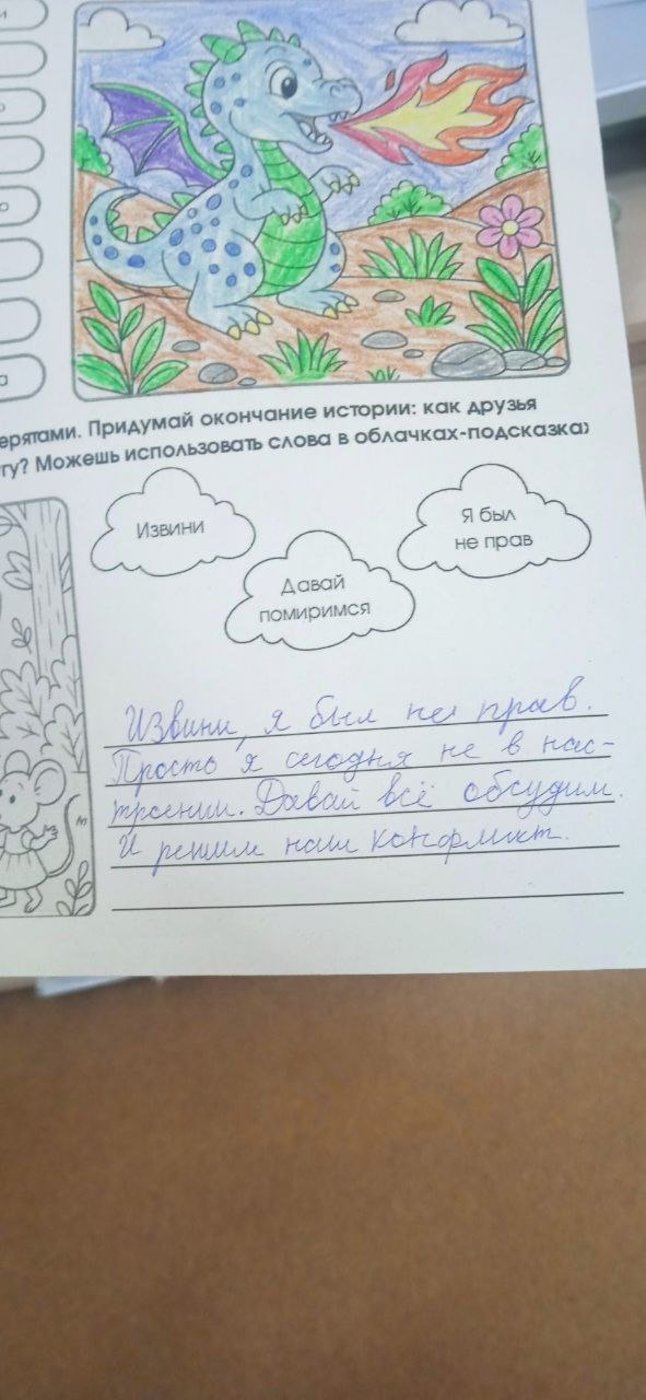 ерятами. Придумай окончание истории: как друзья
гу? Можешь использовать слова в облачках-подсказках)
Извини
Я был
не прав
Давай
помиримся
Извини, я был не прав.
Просто я сегодня не в нас-
троении. Давай всё обсудим.
И решим наш конфликт.